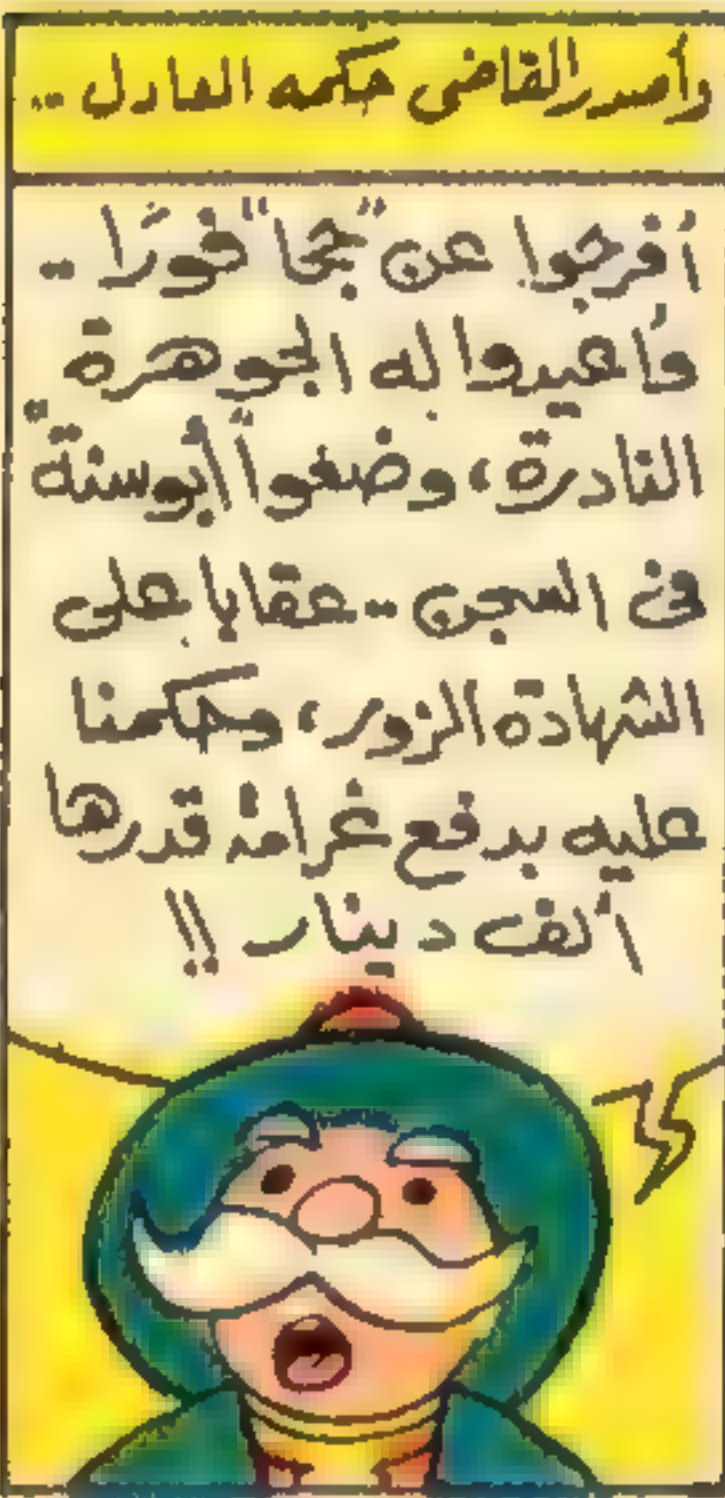 وأصدر القاضى حكمه العادل ..
أفرجوا عن "جحا" فورًا ..
وأعيدوا له الجوهرة
النادرة، وضعوا "أبو سنة"
فى السجن .. عقابا على
الشهادة الزور، وحكمنا
عليه بدفع غرامة قدرها
ألف دينار !!